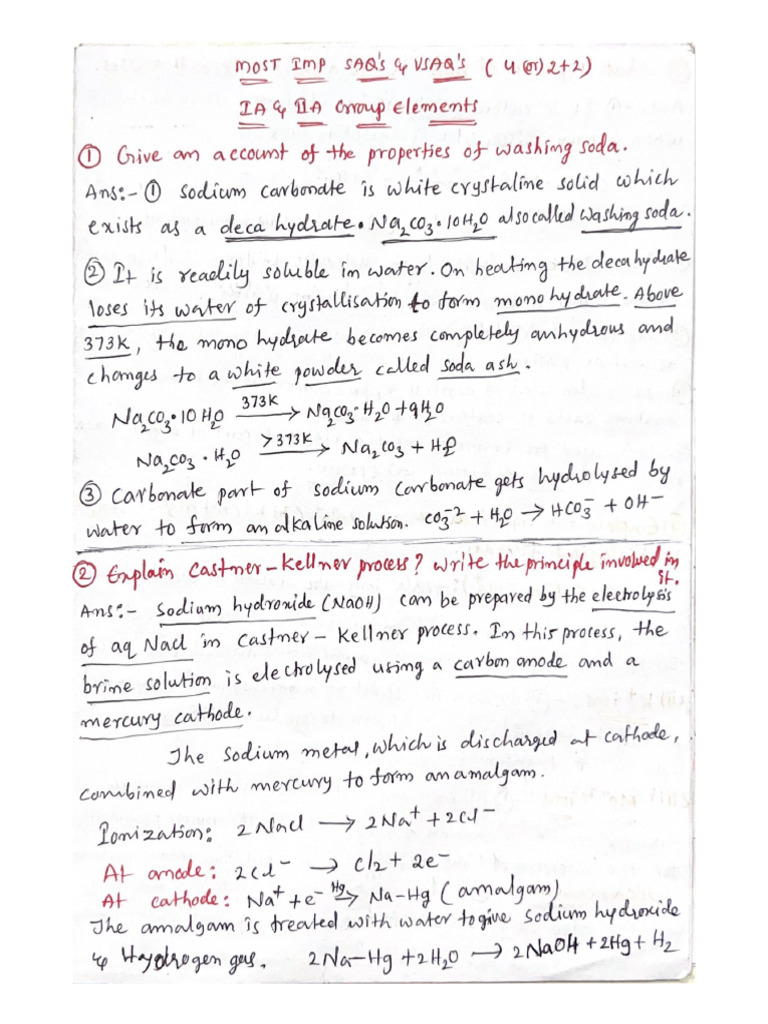 MOST IMP SAQ'S & VSAQ'S (4 (or) 2+2)
IA & IIA Group Elements
① Give an account of the properties of washing soda.
Ans:- ① Sodium carbonate is white crystaline solid which
exists as a deca hydrate. Na₂CO₃·10H₂O also called washing soda.
② It is readily soluble in water. On heating the decahydrate
loses its water of crystallisation to form mono hydrate. Above
373K, the mono hydrate becomes completely anhydrous and
changes to a white powder called soda ash.
Na₂CO₃·10H₂O —373K→ Na₂CO₃·H₂O + 9H₂O
Na₂CO₃·H₂O —>373K→ Na₂CO₃ + H₂O
③ Carbonate part of sodium Carbonate gets hydrolysed by
water to form an alkaline solution. CO₃⁻² + H₂O → HCO₃⁻ + OH⁻
② Explain Castner-Kellner process? Write the principle involved in
it.
Ans:- Sodium hydroxide (NaOH) can be prepared by the electrolysis
of aq Nacl in Castner-Kellner process. In this process, the
brine solution is electrolysed using a carbon anode and a
mercury cathode.
The Sodium metal, which is discharged at cathode,
combined with mercury to form an amalgam.
Ionization: 2Nacl → 2Na⁺ + 2Cl⁻
At anode: 2Cl⁻ → Cl₂ + 2e⁻
At cathode: Na⁺ + e⁻ —Hg→ Na-Hg (amalgam)
The amalgam is treated with water to give sodium hydroxide
& Hydrogen gas. 2Na-Hg + 2H₂O → 2NaOH + 2Hg + H₂